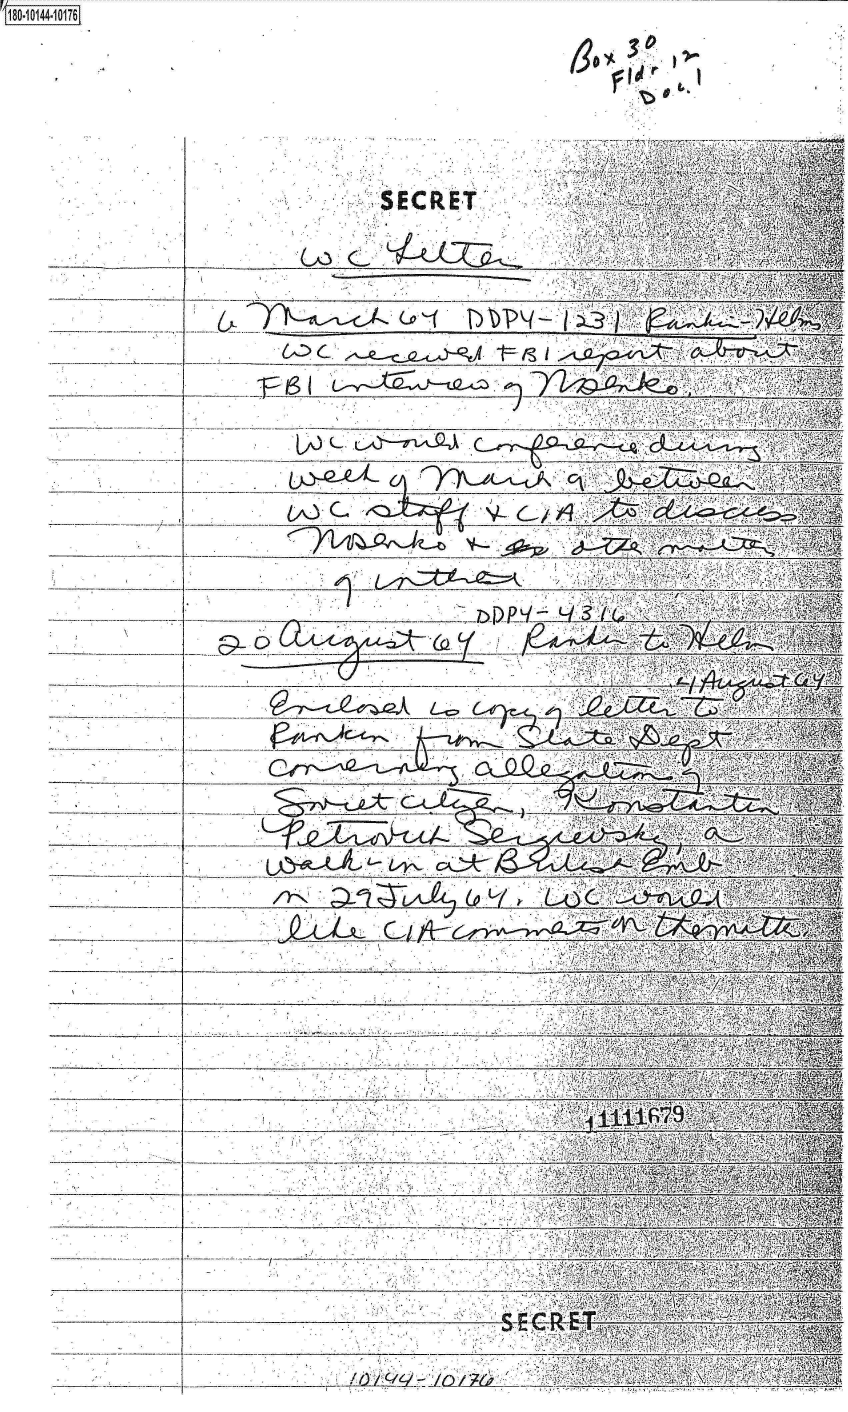 180-10144-10176
Box 30
Fldr 12
Doc. 1
SECRET
WC Letter
6 March 64 DDP4-1231 Rankin-Helms
WC received FBI report about
FBI interview of Nosenko.
WC would conference during
week of March 9 between
WC staff & CIA to discuss
Nosenko & other matters
of interest
DDP4-4316
20 August 64 Rankin to Helm
4 August 64
Enclosed is copy of letter to
Rankin from State Dept
concerning allegations of
Soviet citizen, Konstantin
Petrovich Sergievsky, a
walk-in at British Emb
on 29 July 64. WC would
like CIA comments on the matter.
11111679
SECRET
10144-10176